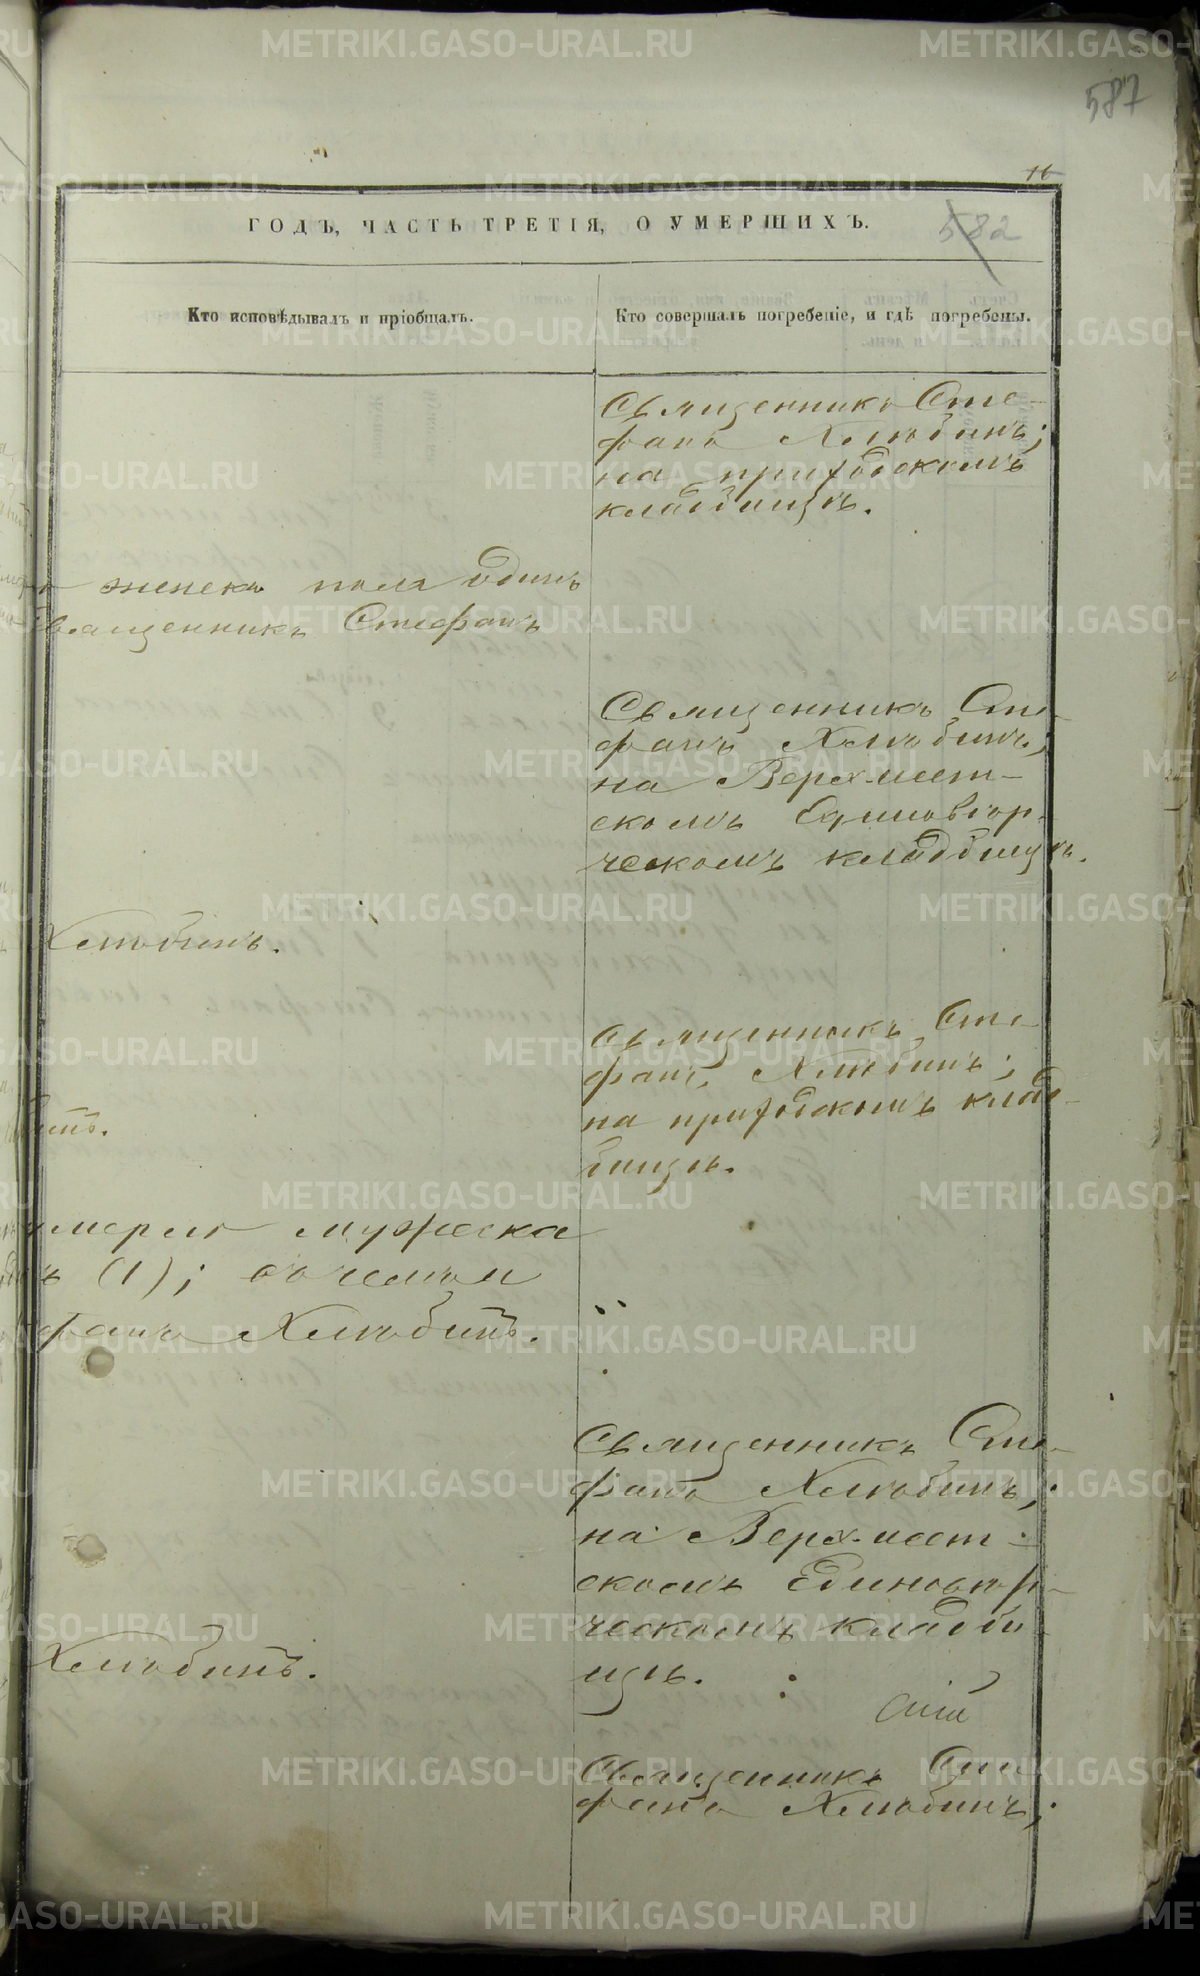 587
16
ГОДЪ, ЧАСТЬ ТРЕТІЯ, О УМЕРШИХЪ.
582
Кто исповѣдывалъ и пріобщалъ.
Кто совершалъ погребеніе, и гдѣ погребены.
Священникъ Сте-
фанъ Хлюбинъ;
на приходскомъ
кладбищѣ.
женска пола одинъ
Священникъ Стефанъ
Священникъ Сте-
фанъ Хлюбинъ;
на Верхъисет-
скомъ Единовѣр-
ческомъ кладбищѣ.
Хлюбинъ.
Священникъ Сте-
фанъ Хлюбинъ;
на приходскомъ клад-
бищѣ.
умерло мужеска
(1);
фанъ Хлюбинъ.
Священникъ Сте-
фанъ Хлюбинъ;
на Верхъисет-
скомъ Единовѣр-
ческомъ кладби-
щѣ.
Хлюбинъ.
Священникъ Сте-
фанъ Хлюбинъ;
METRIKI.GASO-URAL.RU